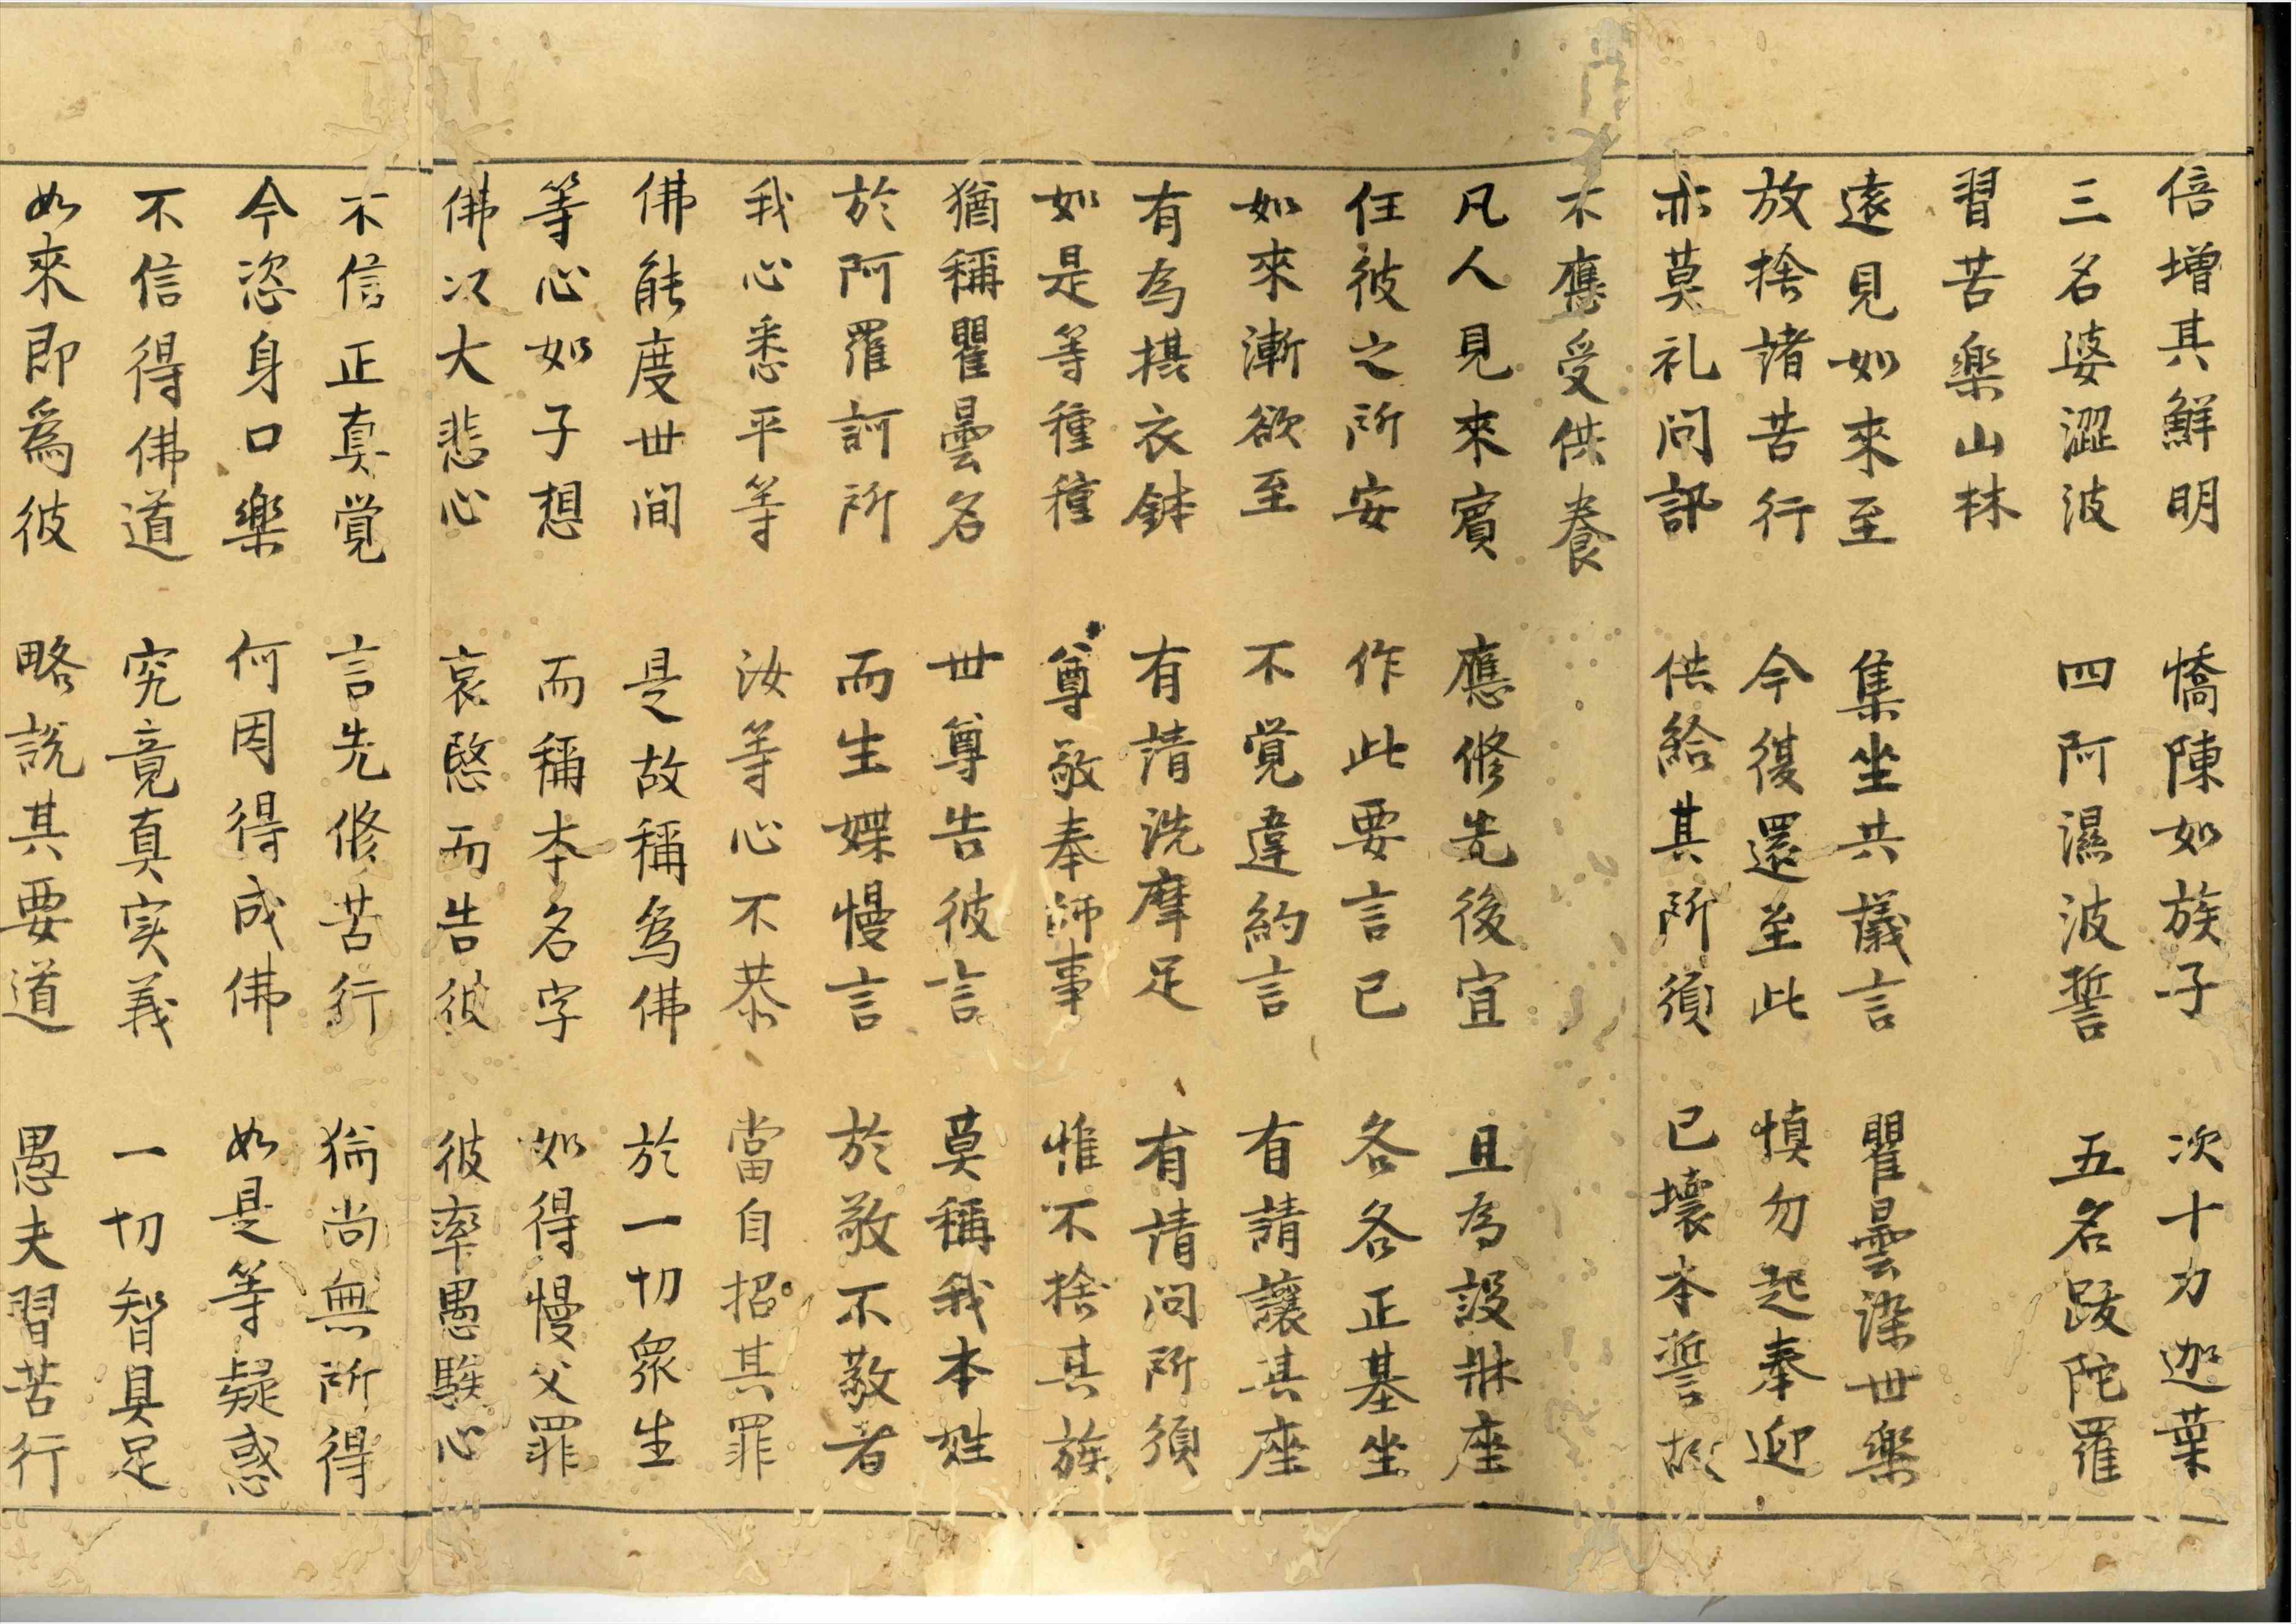 倍增其鮮明　憍陳如族子　次十力迦葉
三名婆澀波　四阿濕波誓　五名跋陀羅
習苦楽山林
遠見如來至　集坐共議言　瞿曇染世樂
放捨諸苦行　今復還至此　慎勿起奉迎
亦莫礼問訊　供給其所須　已壞本誓故
不應受供養
凡人見來賓　應修先後宜　且為設牀座
任彼之所安　作此要言已　各各正基坐
如來漸欲至　不覚違約言　有請讓其座
有為摂衣鉢　有請洗摩足　有請問所須
如是等種種　尊敬奉師事　惟不捨其族
猶稱瞿曇名　世尊告彼言　莫稱我本姓
於阿羅訶所　而生媟慢言　於敬不敬者
我心悉平等　汝等心不恭　當自招其罪
佛能度世間　是故稱為佛　於一切眾生
等心如子想　而稱本名字　如得慢父罪
佛以大悲心　哀愍而告彼　彼率愚騃心
不信正真覚　言先修苦行　猶尚無所得
今恣身口樂　何因得成佛　如是等疑惑
不信得佛道　究竟真実義　一切智具足
如來即為彼　略説其要道　愚夫習苦行